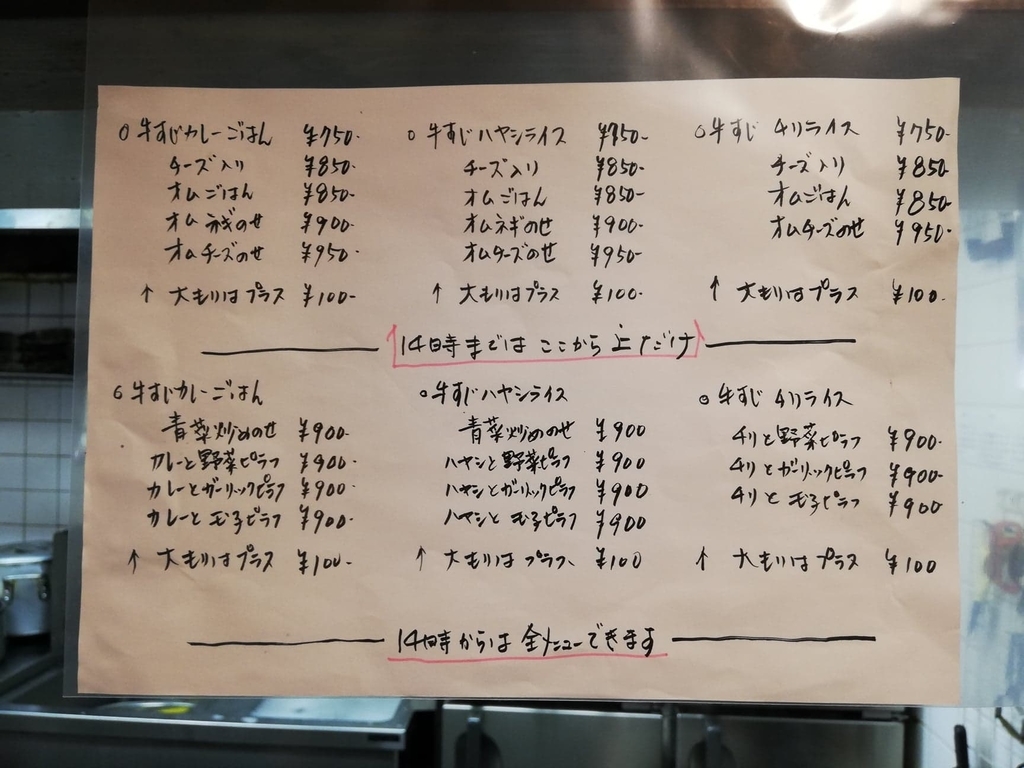 ○牛すじカレーごはん ¥750-
チーズ入り ¥850-
オムごはん ¥850-
オムネギのせ ¥900-
オムチーズのせ ¥950-
↑ 大もりはプラス ¥100-
○牛すじハヤシライス ¥750-
チーズ入り ¥850-
オムごはん ¥850-
オムネギのせ ¥900-
オムチーズのせ ¥950-
↑ 大もりはプラス ¥100-
○牛すじ チリライス ¥750-
チーズ入り ¥850-
オムごはん ¥850-
オムチーズのせ ¥950-
↑ 大もりはプラス ¥100-
14時までは ここから上だけ
○牛すじカレーごはん
青菜炒めのせ ¥900-
カレーと野菜ピラフ ¥900-
カレーとガーリックピラフ ¥900-
カレーと玉子ピラフ ¥900-
↑ 大もりはプラス ¥100-
○牛すじハヤシライス
青菜炒めのせ ¥900
ハヤシと野菜ピラフ ¥900
ハヤシとガーリックピラフ ¥900
ハヤシと玉子ピラフ ¥900
↑ 大もりはプラス ¥100
○牛すじ チリライス
チリと野菜ピラフ ¥900-
チリとガーリックピラフ ¥900-
チリと玉子ピラフ ¥900-
↑ 大もりはプラス ¥100
14時からは全メニューできます